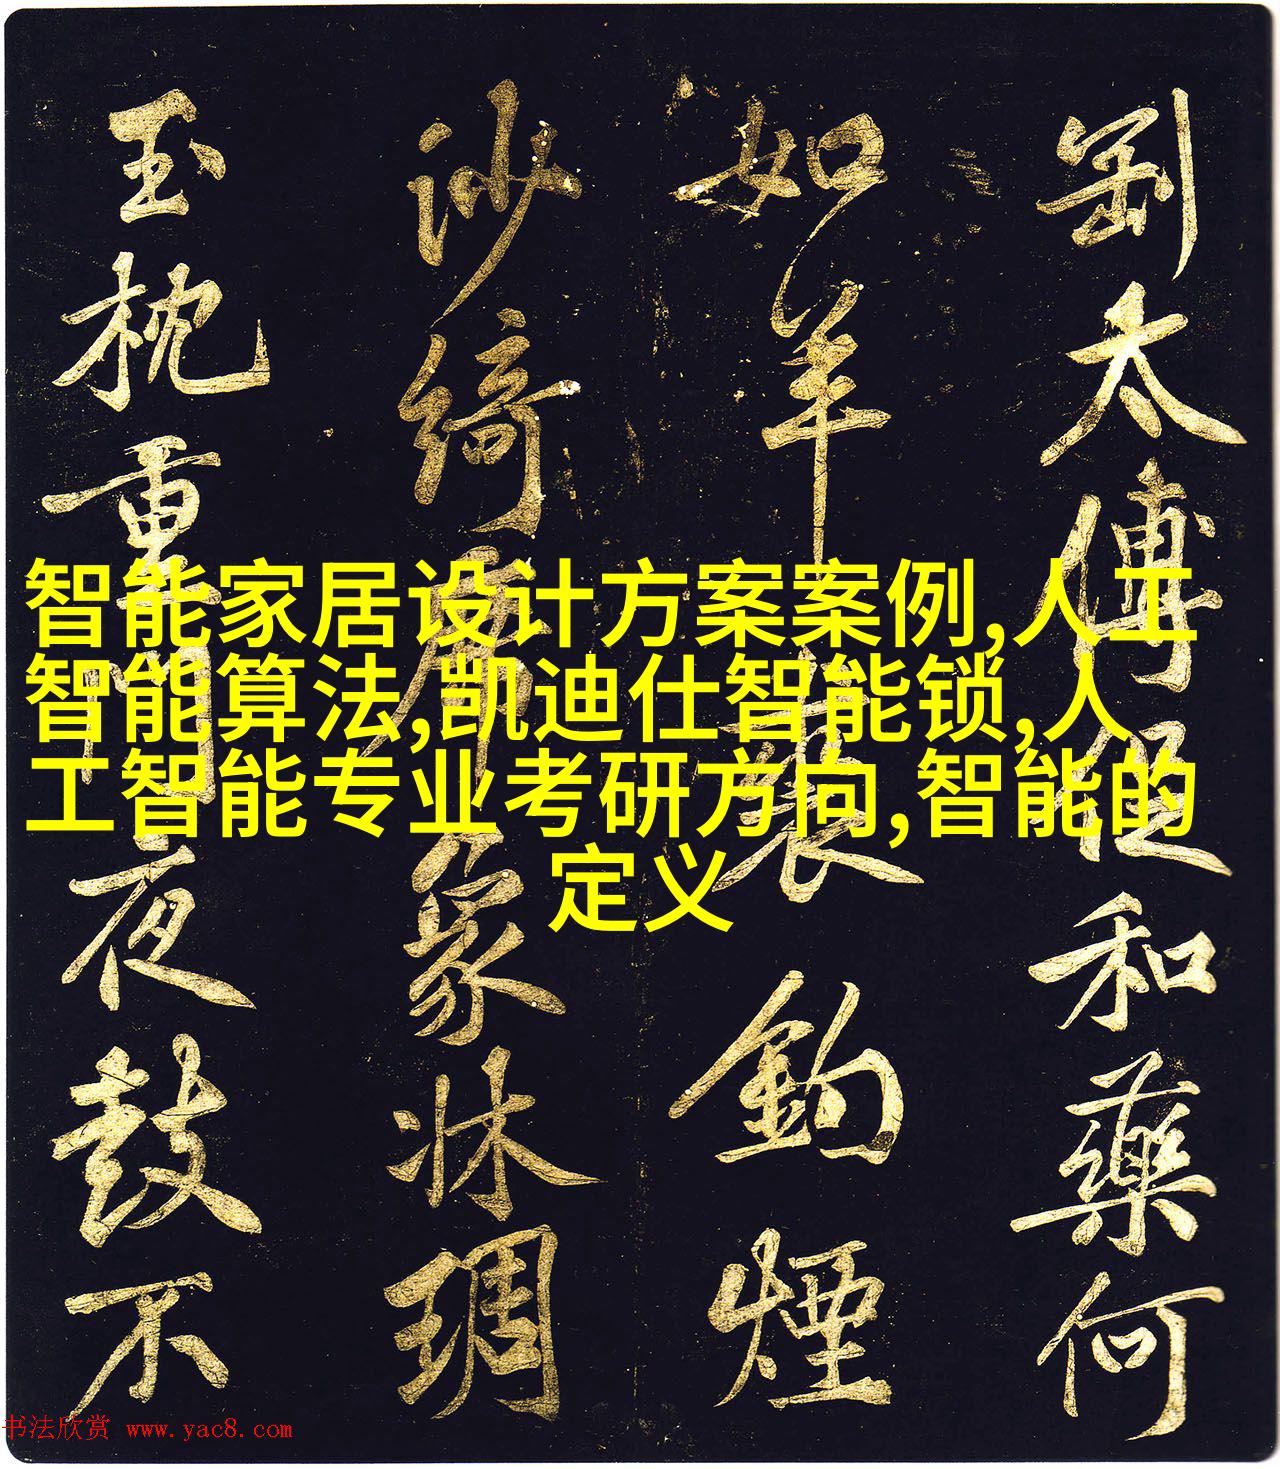 剛太傅促和藥何
如羊裘釣煙
沙綺席象牀琱
玉枕重門夜鼓不
智能家居设计方案案例,人工
智能算法,凯迪仕智能锁,人
工智能专业考研方向,智能的
定义
书法欣赏 www.yac8.com